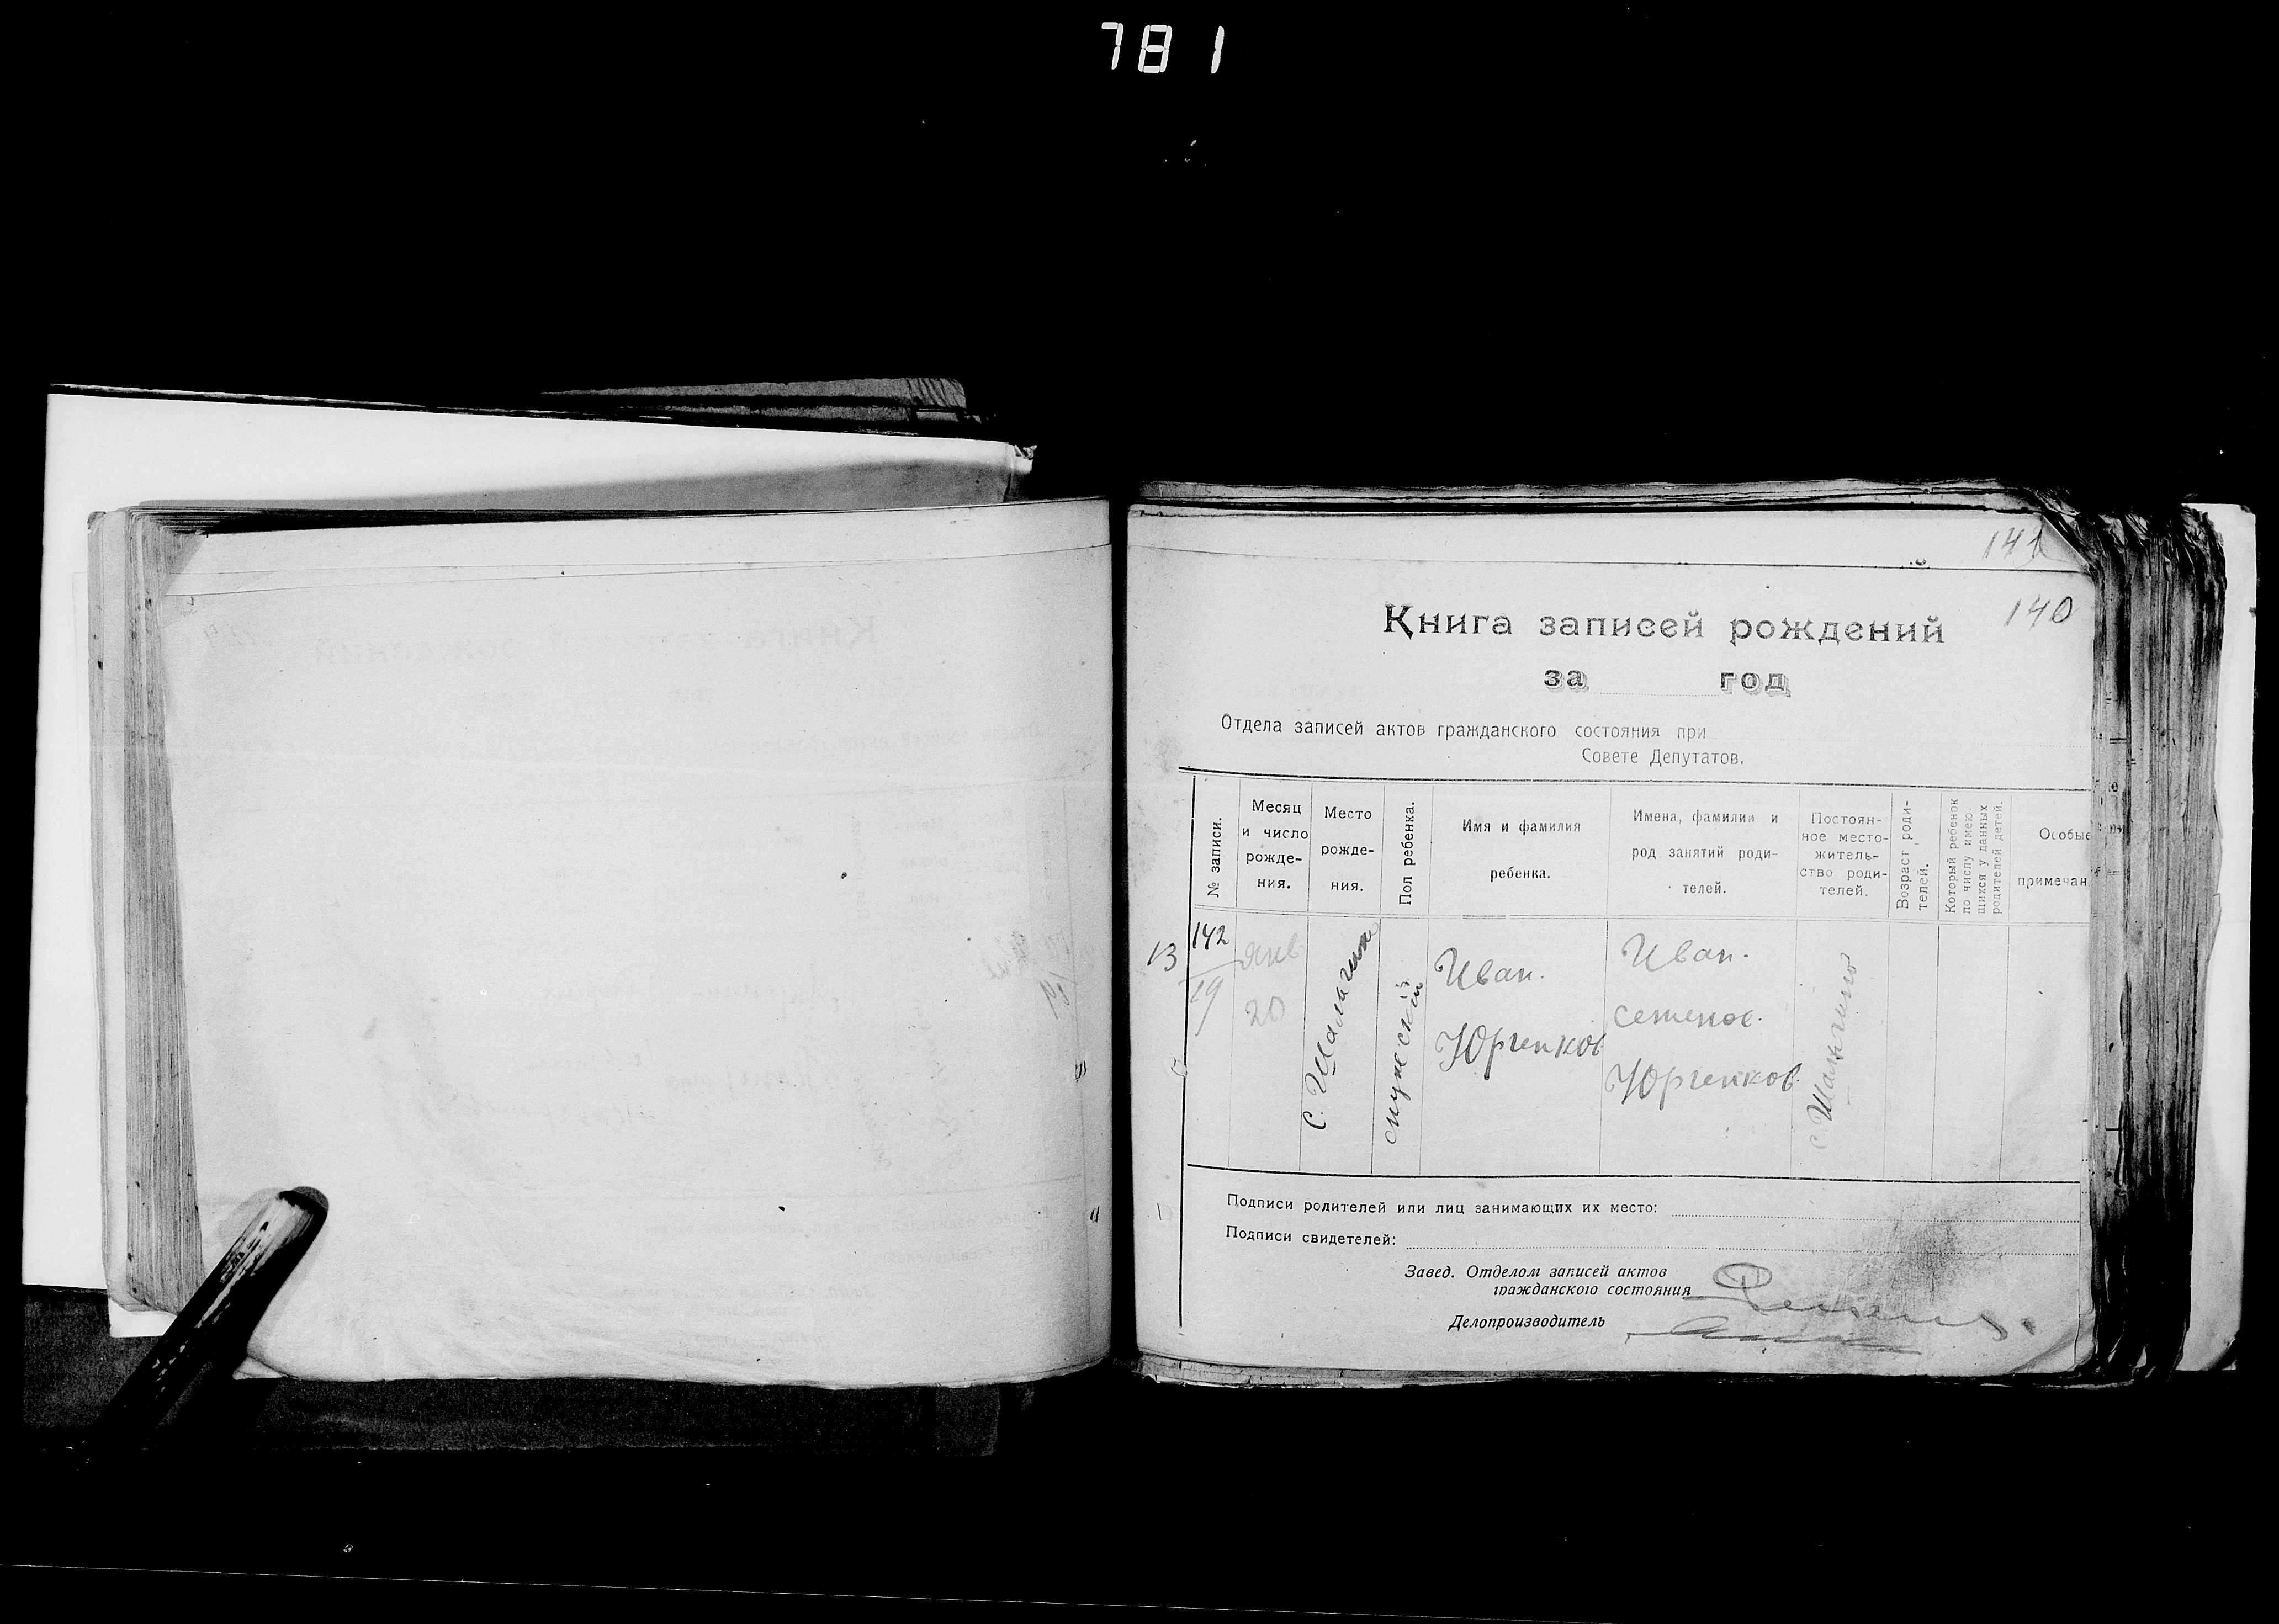 781
141
140
Книга записей рождений
за год
Отдела записей актов гражданского состояния при
Совете Депутатов.
№ записи.
Месяц
и число
рожде-
ния.
Место
рожде-
ния.
Пол ребенка.
Имя и фамилия
ребенка.
Имена, фамилии и
род занятий роди-
телей.
Постоян-
ное место-
житель-
ство роди-
телей.
Возраст роди-
телей.
Который ребенок
по числу имею-
щихся у данных
родителей детей.
Особые
примечан
13
142
19
янв
20
мужеский
Иван.
Юргенков
Иван.
семенов.
Юргенков.
Подписи родителей или лиц занимающих их место:
Подписи свидетелей:
Завед. Отделом записей актов
гражданского состояния
Делопроизводитель